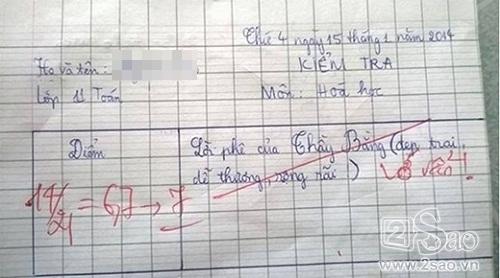 Thứ 4 ngày 15 tháng 1 năm 2014
KIỂM TRA
Họ và tên:
Lớp 11 Toán
Môn: Hoá học
Điểm
Lời phê của Thầy Bằng (đẹp trai,
dễ thương, rộng rãi)
14/21 = 6,7 → 7
2Sao
www.2sao.vn